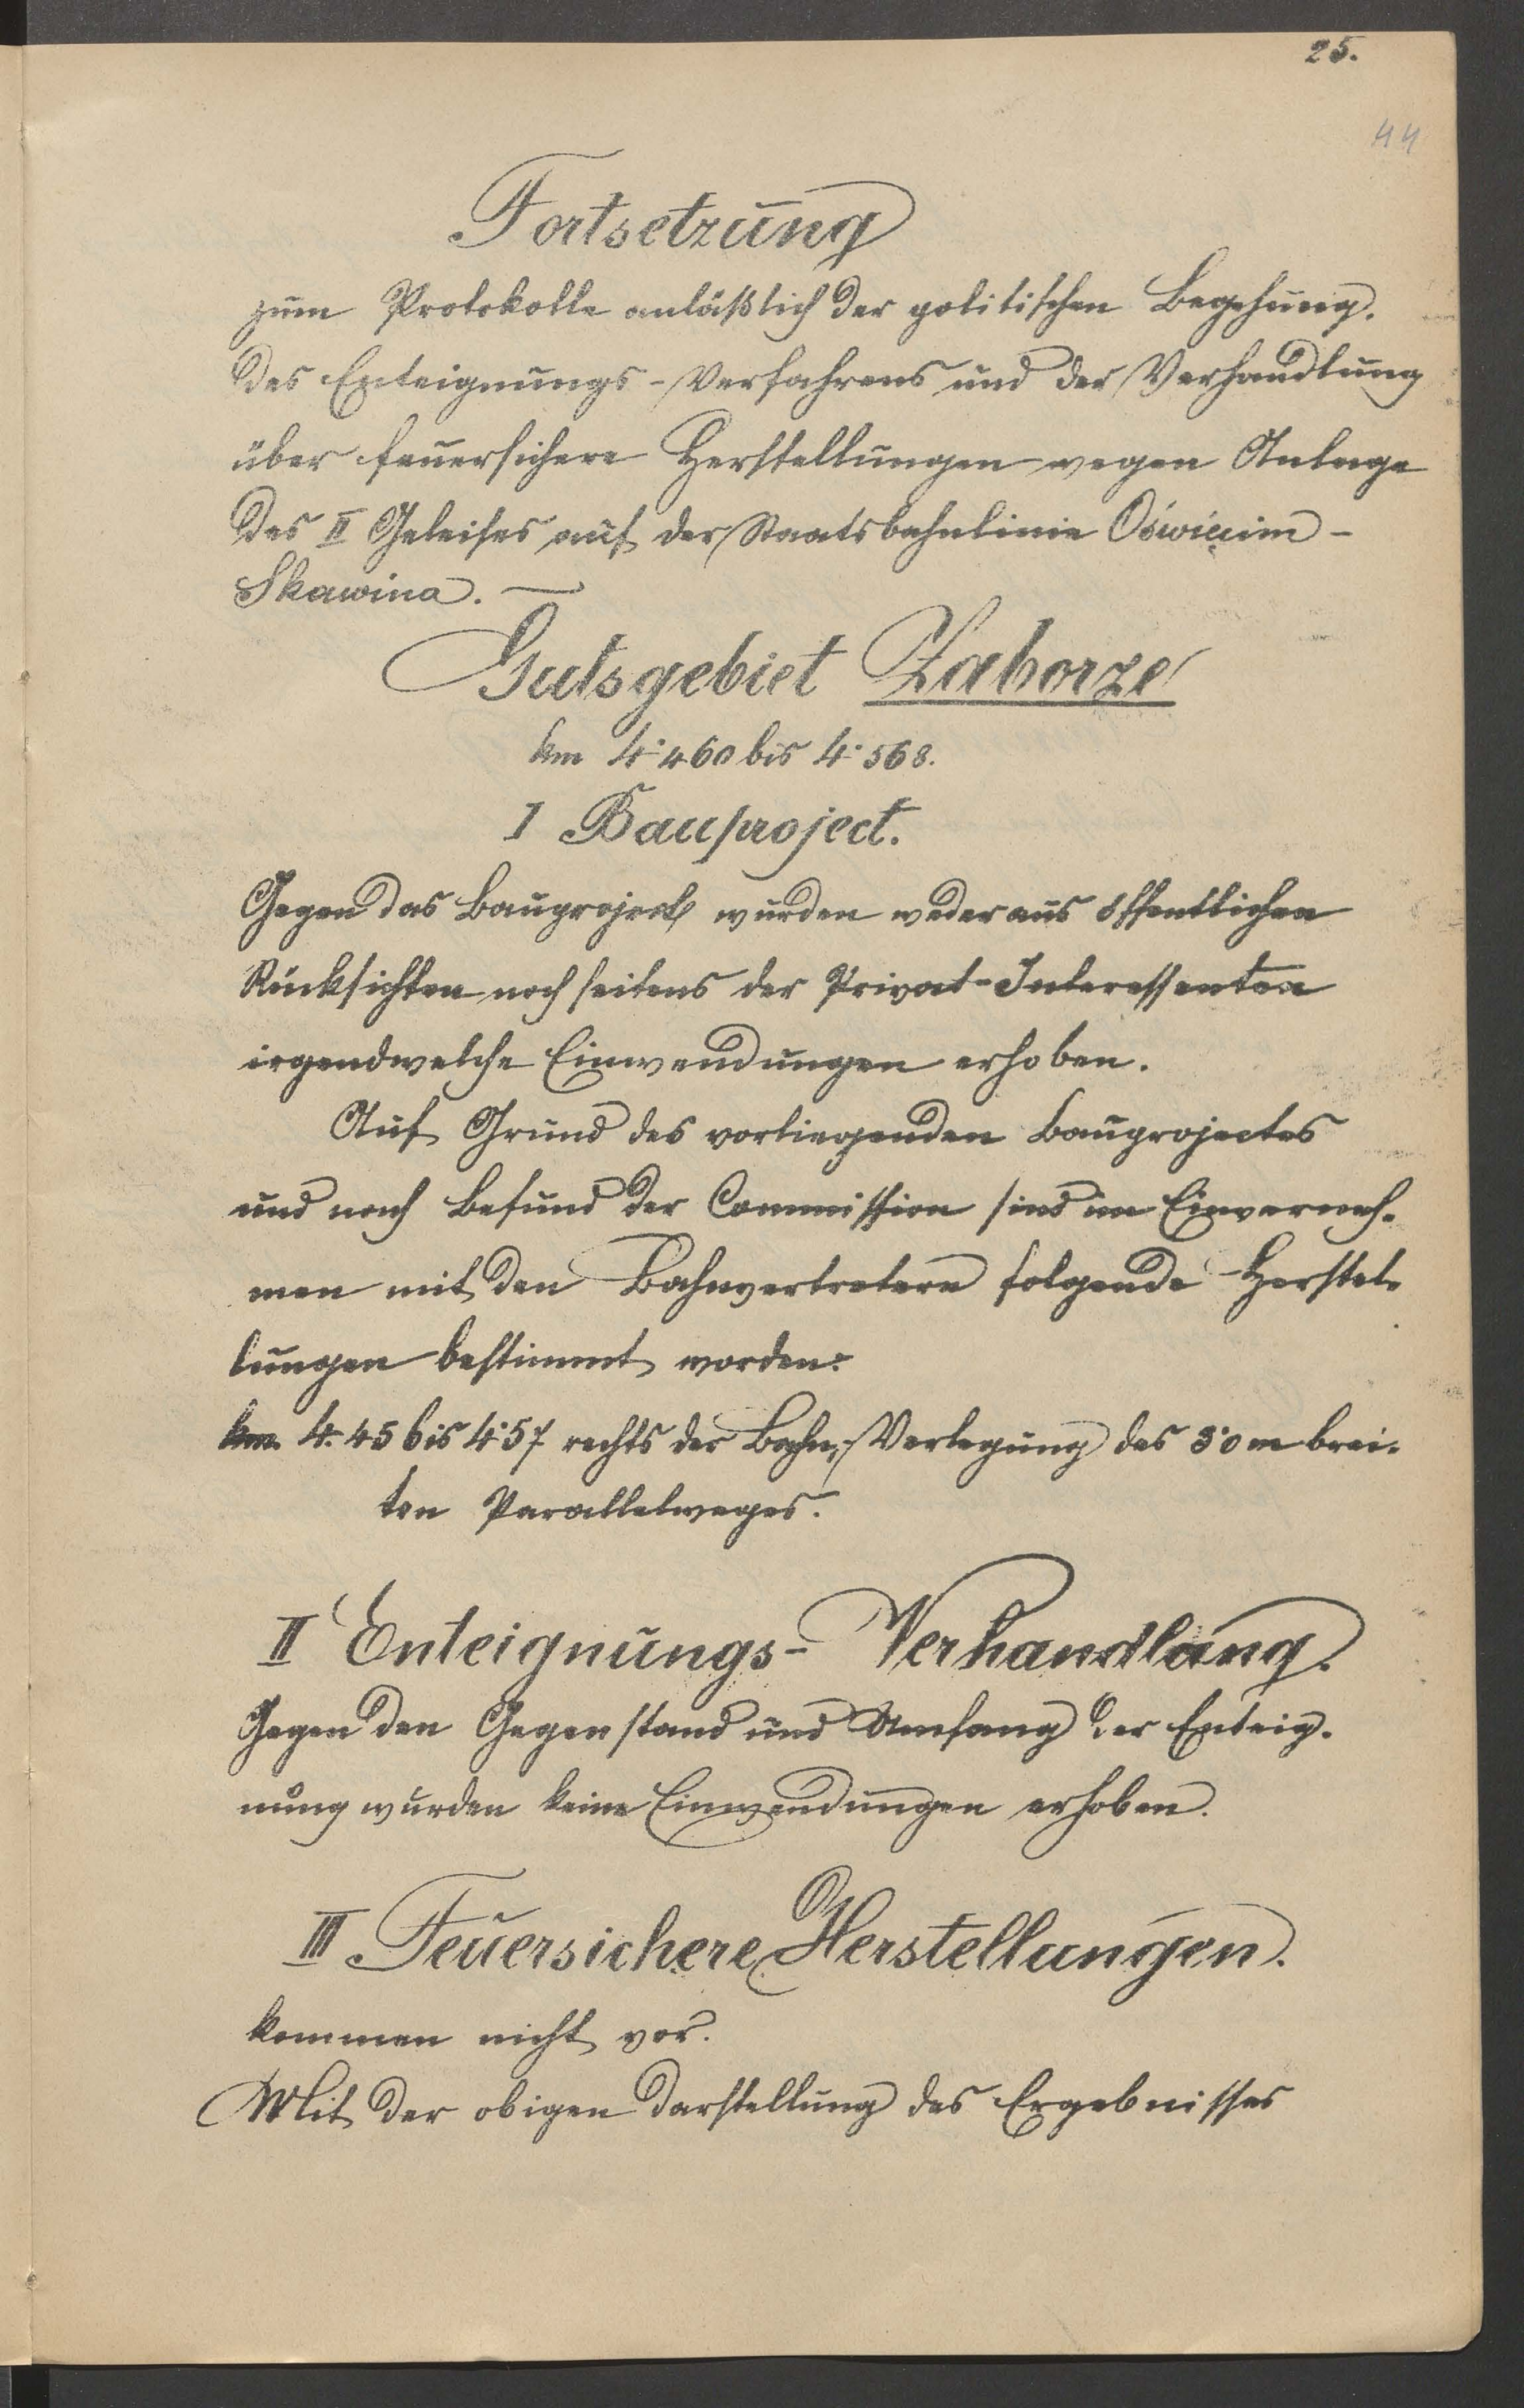 25.
44
Fortsetzung
zum Protokolle anläßlich der politischen Begehung,
des Enteignungs-Verfahrens und der Verhandlung
über feuersichere Herstellungen wegen Anlage
des II Geleises auf der Staatsbahnlinie Oświęcim-
Skawina. —
Gutsgebiet Zaborze
km 4·460 bis 4·568.
I Bauproject.
Gegen das Bauproject wurden weder aus öffentlichen
Rücksichten noch seitens der Privat-Interessenten
irgendwelche Einwendungen erhoben.
Auf Grund des vorliegenden Bauprojectes
und nach Befund der Commission sind im Einverneh-
men mit den Bahnvertretern folgende Herstel-
lungen bestimmt worden:
km. 4·45 bis 4·57 rechts der Bahn, Verlegung des 3·0 m brei-
ten Parallelweges.
II Enteignungs-Verhandlung.
Gegen den Gegenstand und Umfang der Enteig-
nung wurden keine Einwendungen erhoben.
III Feuersichere Herstellungen.
kommen nicht vor.
Mit der obigen Darstellung des Ergebnisses